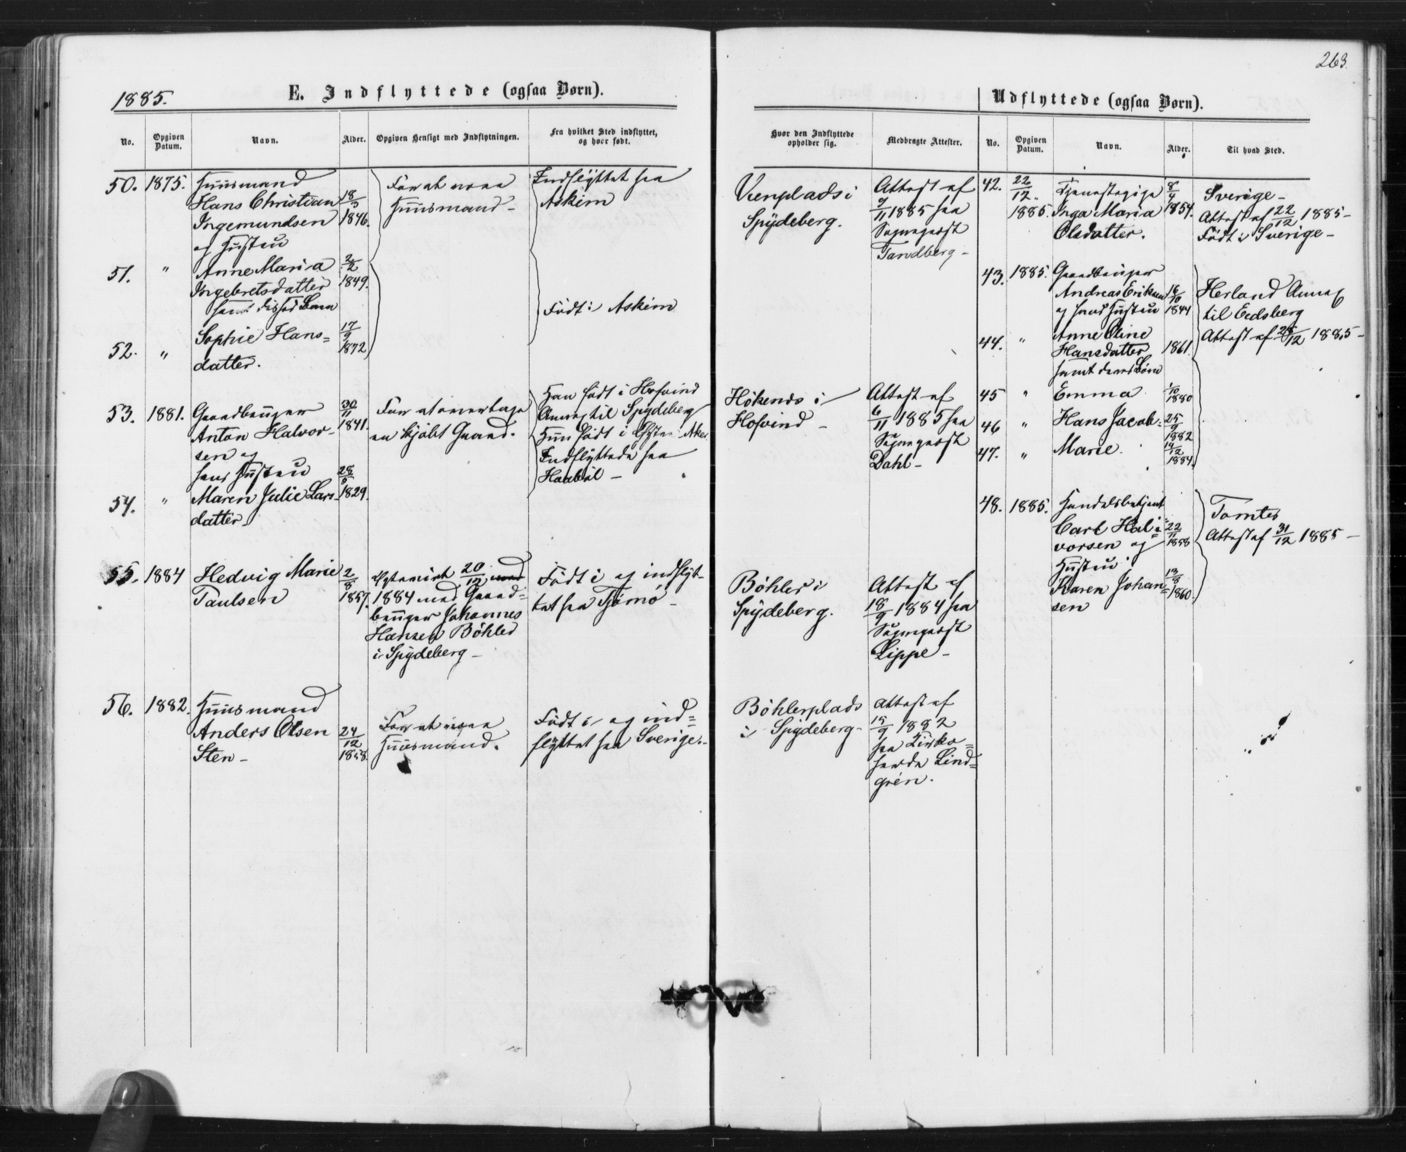 263.
1885.
E. Indflyttede (ogsaa Børn).
No.
Opgiven Datum.
Navn.
Alder.
Opgiven Hensigt med Indflytningen.
Fra hvilket Sted indflyttet, og hvor født.
50. 1875. Huusmand
Hans Christian
Ingemundsen
og Hustru
1846.
For at være
Huusmand -
Indflyttet fra
Askim
51. " Anne Maria
Ingebretsdatter
samt disses Barn
1849.
Født i Askim
52. " Sophie Hans=
datter.
17/9
1872
53. 1881. Gaardbruger
Anton Halvor-
sen og
hans Hustru
30/11
1841.
For at overtage
en kjøbt Gaard.
Han født i Hofvind
Annex til Spydeberg
Hun født i
Indflyttede fra
Haabøl -
54. " Maren Julie Lars-
datter -
1829.
55. 1884 Hedvig Marie
Paulsen
2/8
1857.
Egteviet 20/12
1884 med Gaard=
bruger Johannes
Hansen Bøhler
i Spydeberg -
Født i og indflyt-
tet fra Tjømø -
56. 1882. Huusmand
Anders Olsen
Sten -
24/12
For at være
Huusmand.
Født i og ind=
flyttet fra Sverige.-
Hvor den Indflyttede opholder sig.
Medbragte Attester.
Vienplads i
Spydeberg.
Attest af
7/11 1885 fra
Sognepræst
Tandberg -
Høkenæs i
Hofvind -
Attest af
6/11 1885 fra
Sognepræst
Dahl -
Bøhler i
Spydeberg.
Attest af
18/9 1884 fra
Sognepræst
Lippe -
Bøhlerplads
i Spydeberg -
Attest af
15/9 1882
fra Kirko=
herde Lind=
grén.
Udflyttede (ogsaa Børn).
No.
Opgiven Datum.
Navn.
Alder.
Til hvad Sted.
42. 22/12. 1885. Tjenestepige
Inga Maria
Olsdatter.
1854.
Sverige -
Attest af 22/12 1885 -
Født i Sverige -
43. 1885. Gaardbruger
Andreas Eriksen
og hans Hustru
18/10
1844
Herland Annex
til Eidsberg
Attest af 28/12 1885 -
44. " Anne Oline
Hansdatter
samt deres Børn
1861.
45 " Emma
1880
46 " Hans Jacob.
25/9
1882
47. " Marie.
1884.
48. 1885. Handelsbetjent
Carl Hal=
vorsen og
Hustru
Karen Johan=
sen
22/11
1858
1860.
Tomter
Attest af 31/12 1885 -